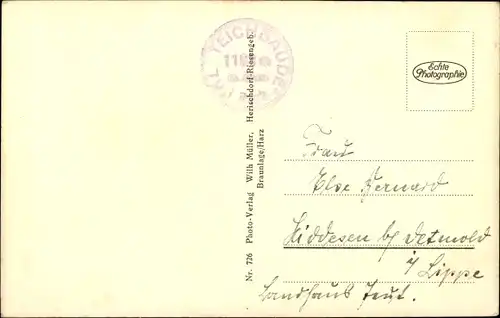 KL. TEICHBAUDE
Echte
Photographie
Nr. 726 Photo-Verlag Wilh Müller, Herischdorf-Riesengeb.
Braunlage/Harz
Frau
Else Bernard
Hiddesen b/ Detmold
i/ Lippe
Landhaus Teut.